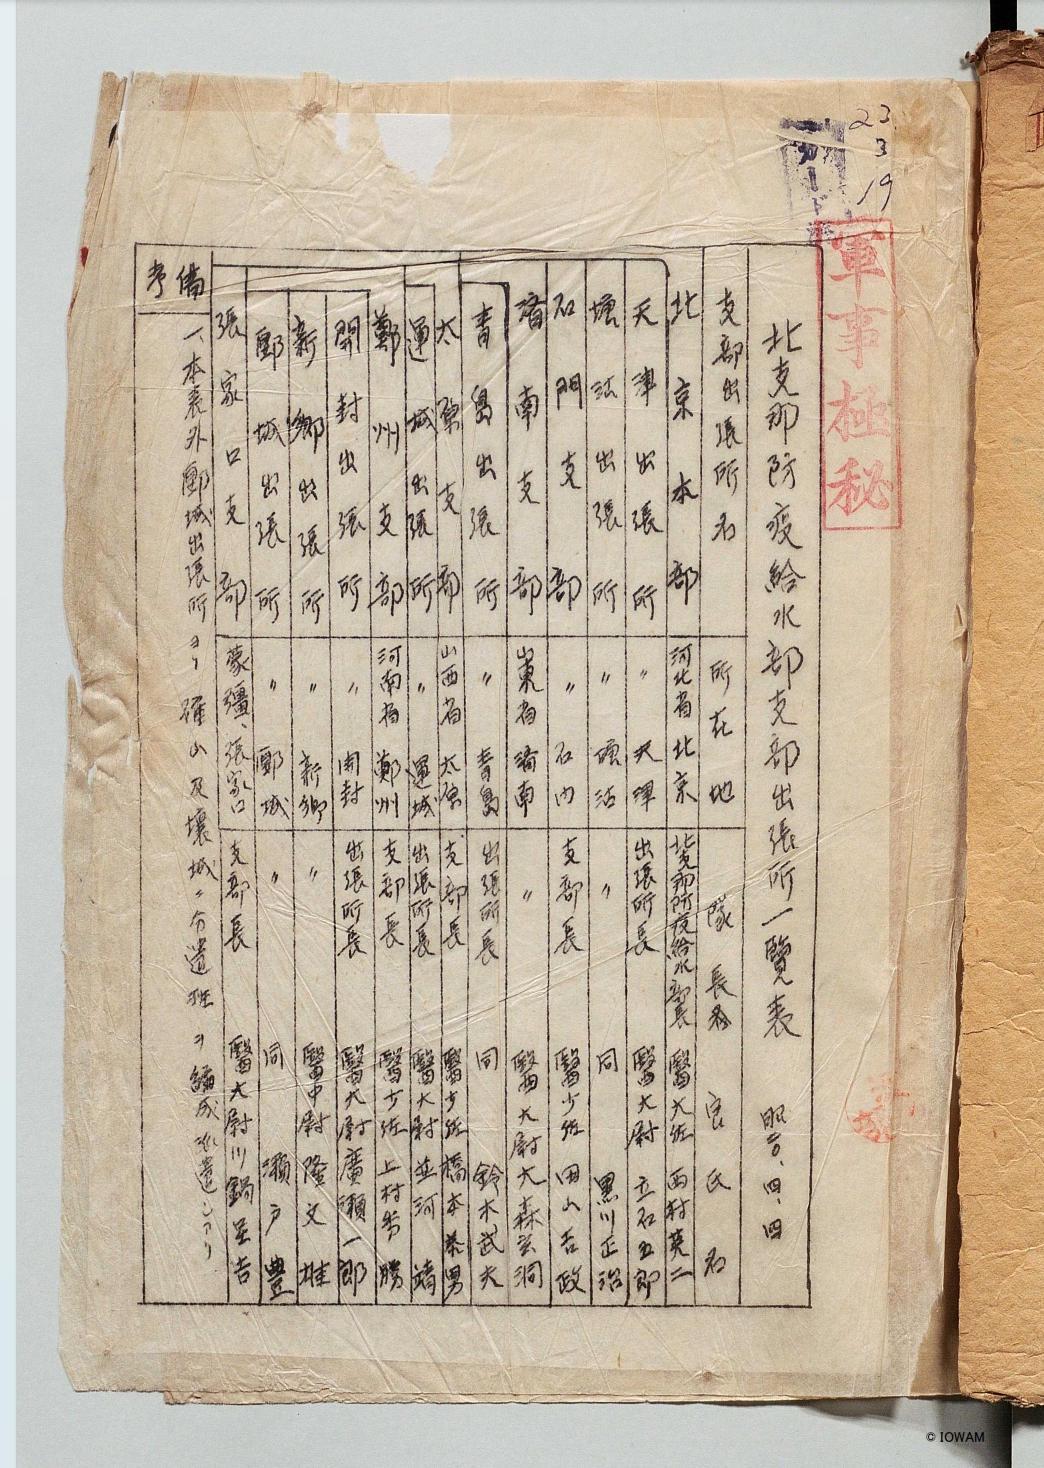 23
3
19
軍事極秘
北支那防疫給水部支部出張所一覽表 昭二〇、四、四
支部出張所名 所在地 隊長 官氏名
北京本部 河北省北京 北支那防疫給水部長 醫大佐 西村英二
天津出張所 〃 天津 出張所長 醫大尉 立石五郎
塘沽出張所 〃 塘沽 〃 同 黒川正治
石門支部 〃 石门 支部長 醫少佐 田山吉政
濟南支部 山東省濟南 〃 醫大尉 大森玄洞
青島出張所 〃 青島 出張所長 同 鈴木武夫
太原支部 山西省太原 支部長 醫少佐 橋本 男
運城出張所 〃 運城 出張所長 醫大尉 並河 靖
鄭州支部 河南省鄭州 支部長 醫少佐 上村秀勝
開封出張所 〃 開封 出張所長 醫大尉 廣瀬一郎
新鄉出張所 〃 新鄉 〃 醫中尉 隆文雄
郾城出張所 〃 郾城 〃 同 瀬戸豊
張家口支部 蒙疆、張家口 支部長 醫大尉 川鍋里吉
備考
一、本表外郾城出張所ヨリ確山及壌城ニ分遣班ヲ編成派遣シアリ
© IOWAM